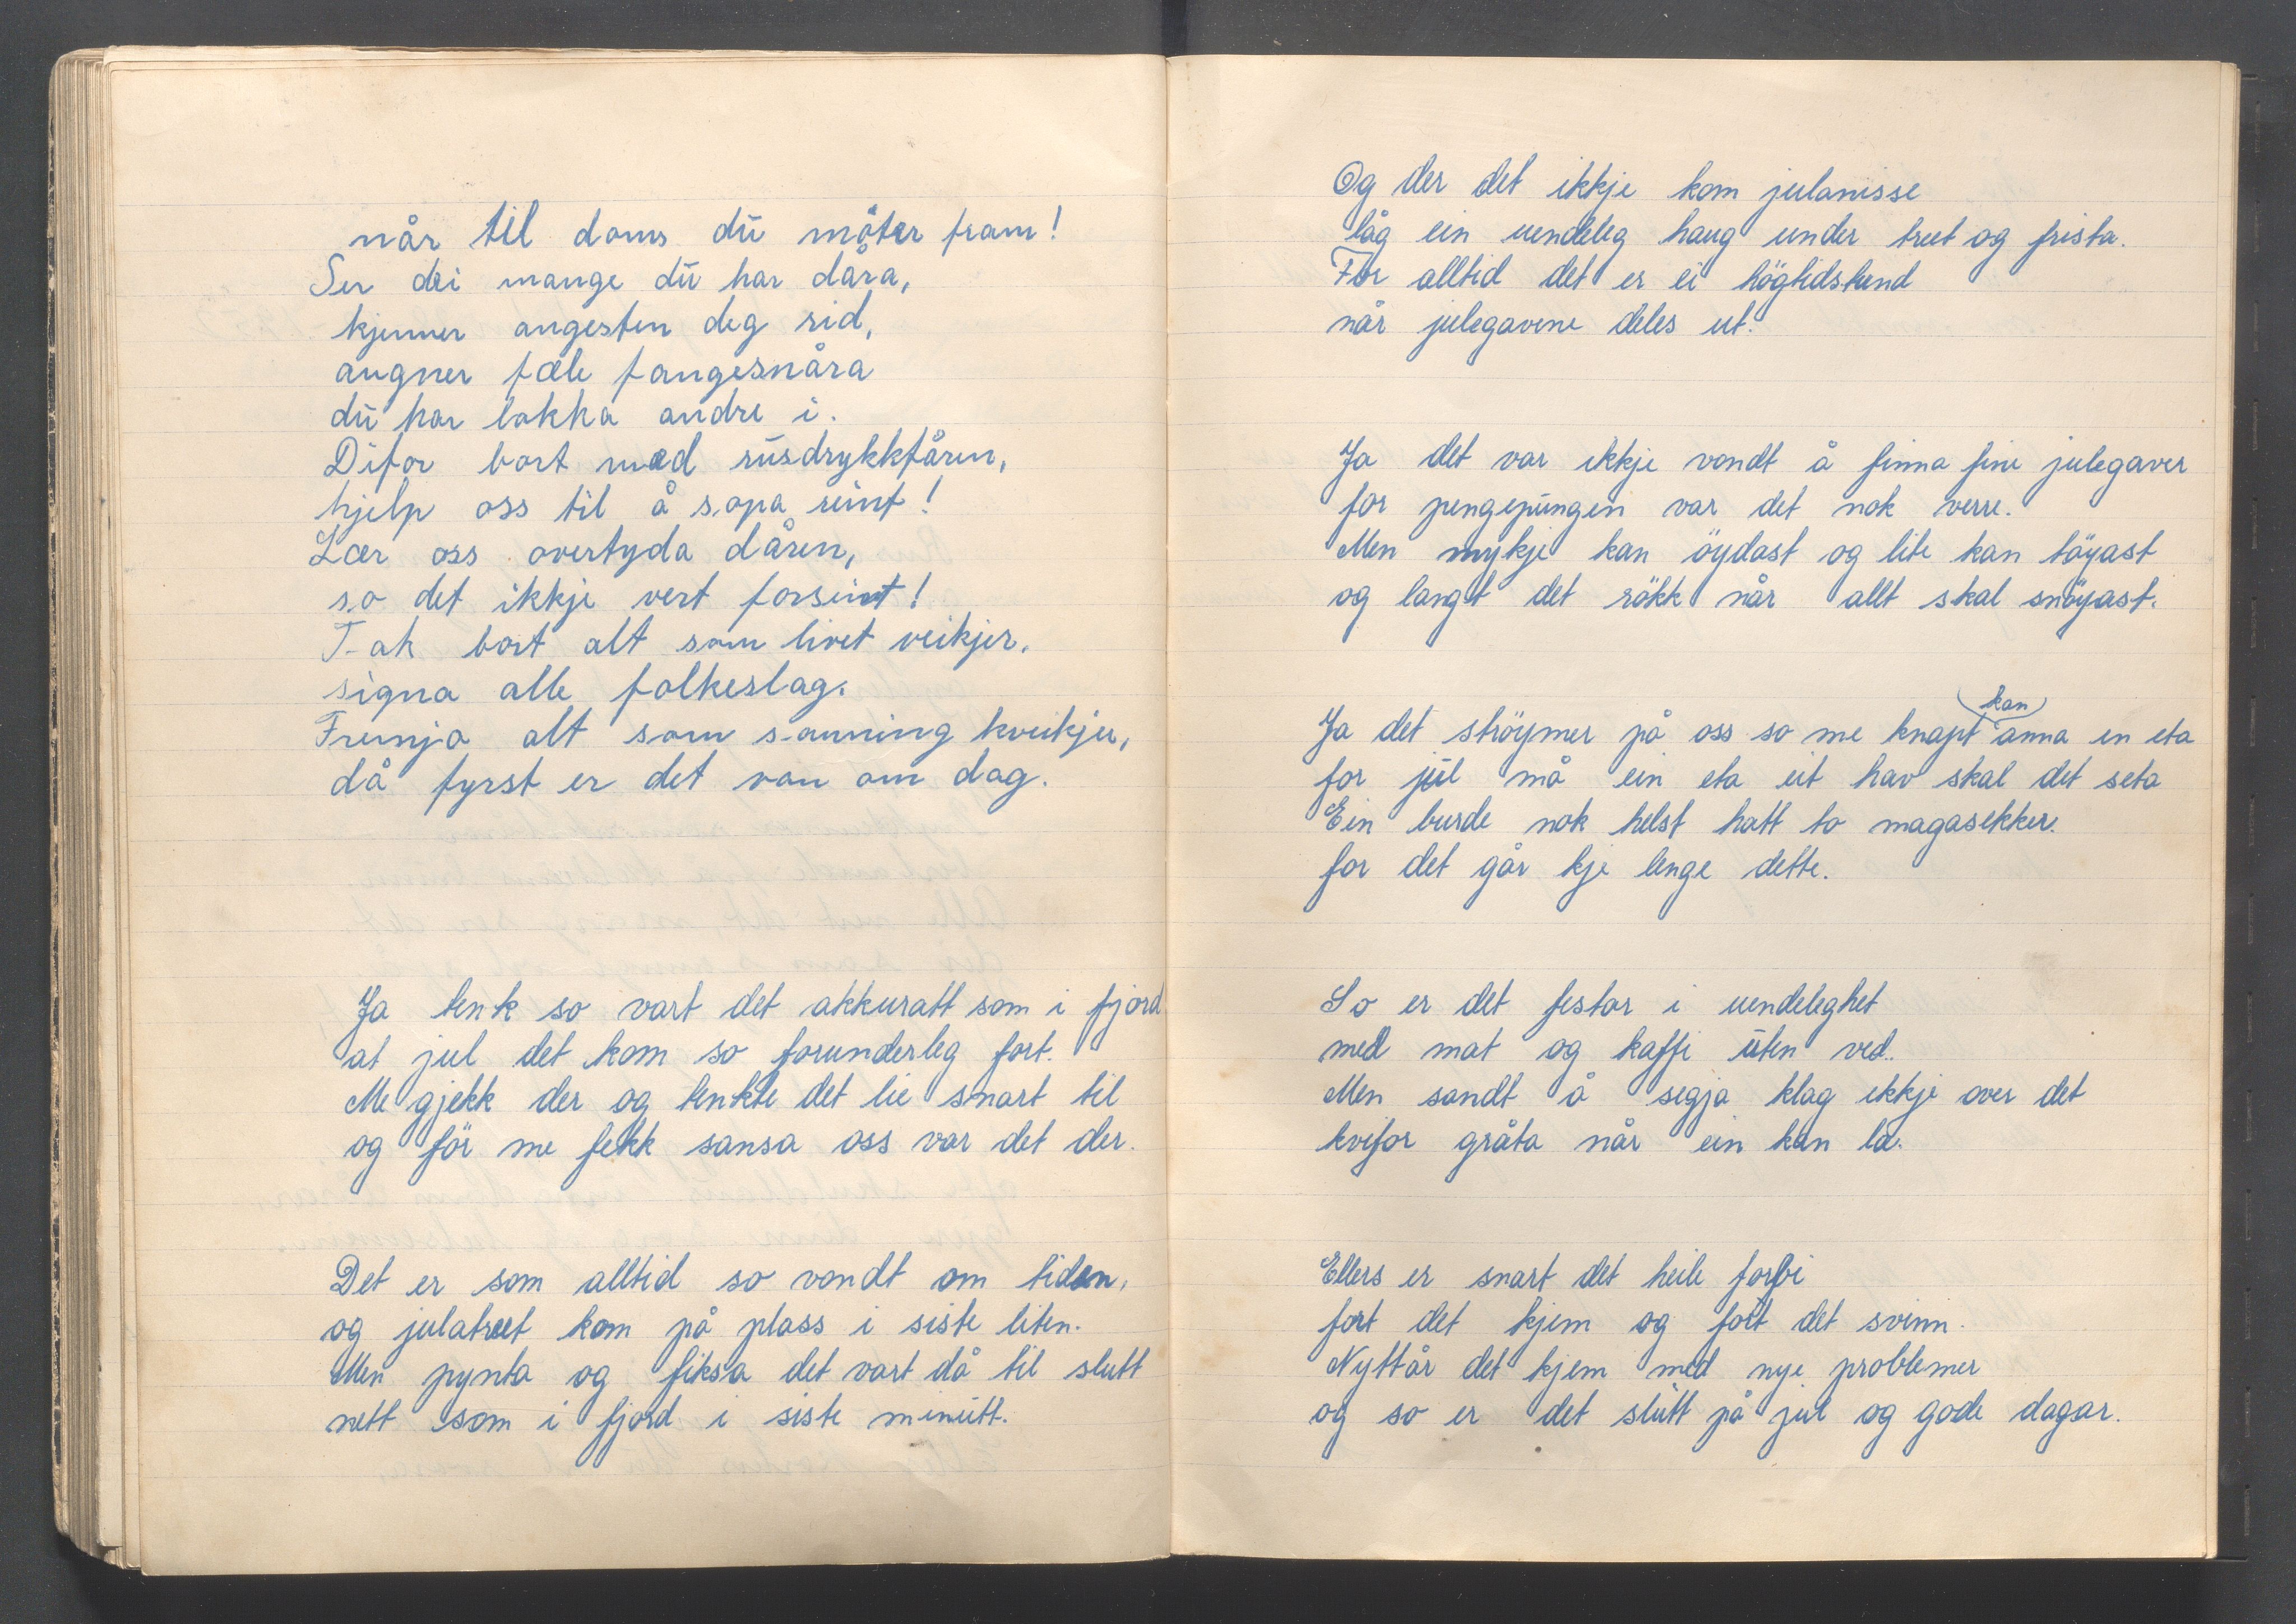 når til doms dū möter fram!
Ser dei mange dū har dåra,
kjenner angesten deg rid,
augner fæle fangesnåra
dū har lokka andre i.
Difor bort med rūsdrykkfåren,
hjelp oss til å sopa reint!
Lær oss overtyda dåren,
so det ikkje vert forseint!
Tak bort alt som livet veikjer,
signa alle folkeslag.
Fremja alt som sanning kveikjer,
då fyrst er det von om dag.
Ja tenk so vart det akkuratt som i fjord
at jul det kom so forunderleg fort.
Me gjekk der og tenkte det lie snart til
og för me fekk sansa oss var det der.
Det er som alltid so vondt om tiden,
og julatreet kom på plass i siste liten.
Men pynta og fiksa det vart då til slutt
nett som i fjord i siste minūtt.
Og der det ikkje kom julanisse
låg ein uendeleg haug under treet og frista.
For alltid det er ei högtidstund
når julegavene deles ut.
Ja det var ikkje vondt å finna fine julegaver
for pengepūngen var det nok verre.
Men mykje kan öydast og lite kan töyast
og langt det rökk når allt skal snöyast.
Ja det ströymer på oss so me knapt (kan) anna en eta
for jūl må ein eta eit hav skal det seta
Ein burde nok helst hatt to magasekker.
for det går kje lenge dette.
So er det festar i uendeleghet
med mat og kaffi ūten ved.
Men sandt å segja klag ikkje over det
kvifor gråta når ein kan le.
Ellers er snart det heile forbi
fort det kjem og fort det svinn.
Nyttår det kjem med nye problemer
og so er det slūtt på jul og gode dagar.